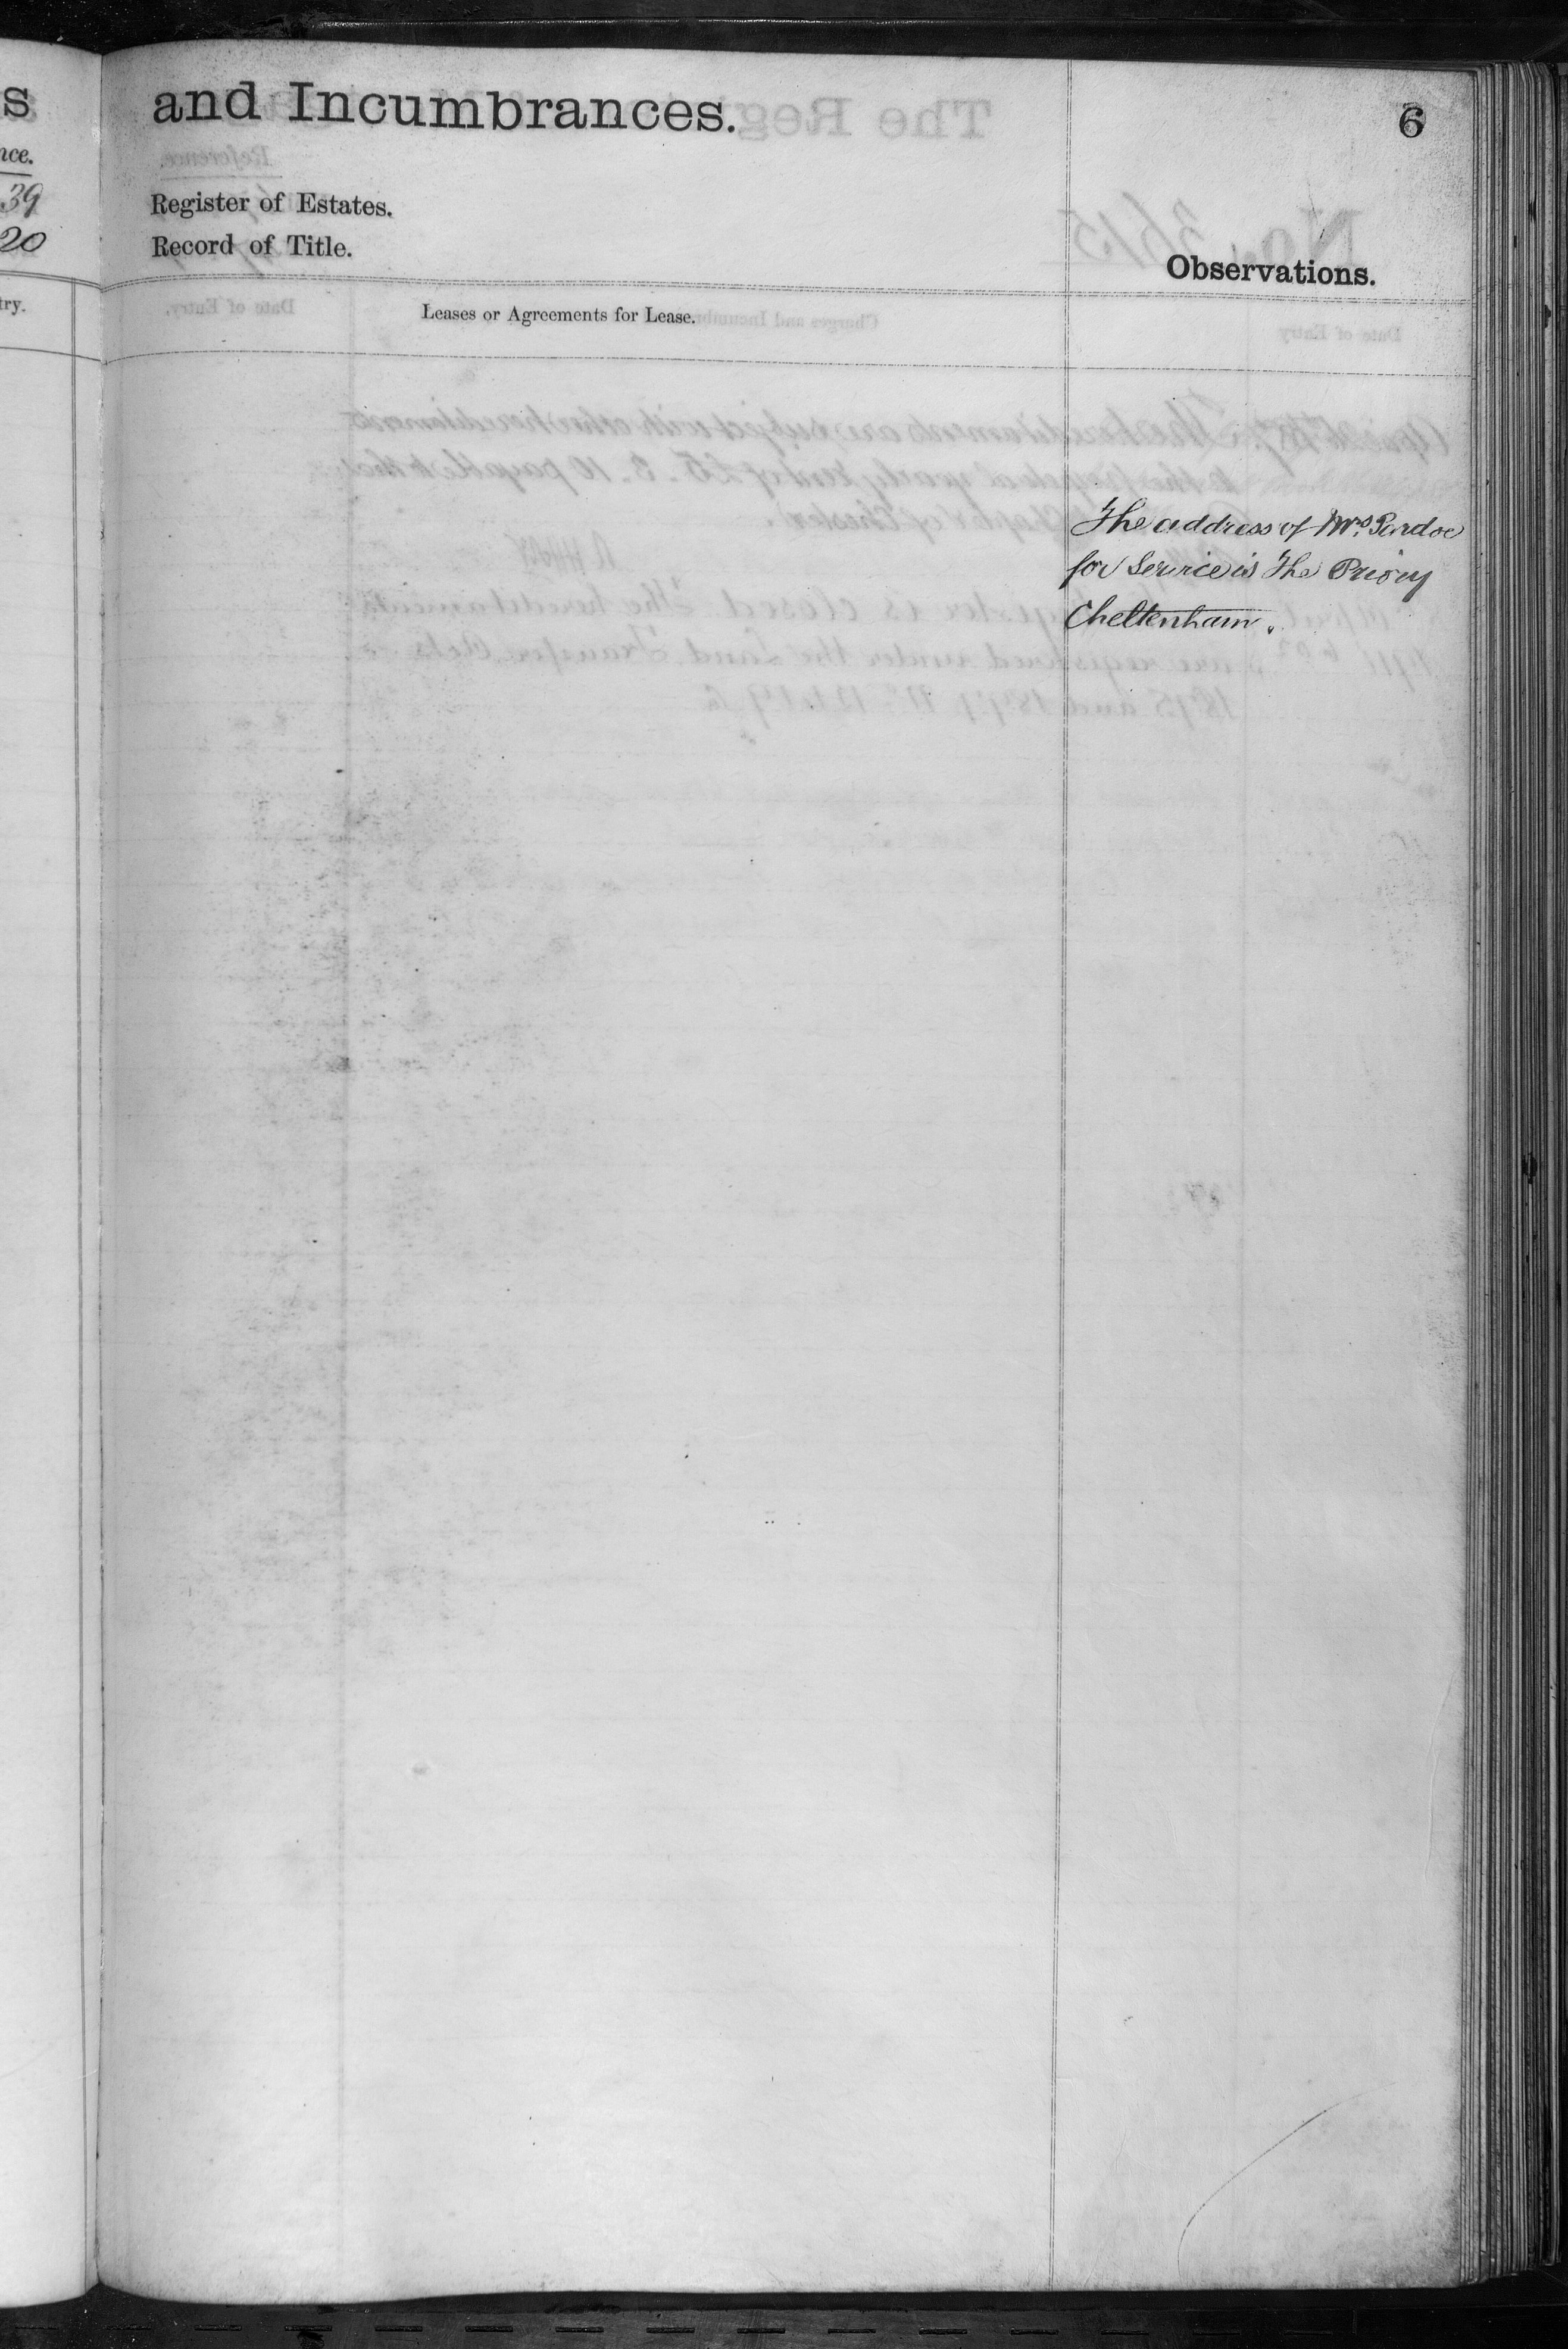 and Incumbrances.
6
Register of Estates.
Record of Title.
Observations.
Leases or Agreements for Lease.
The address of Mrs. Pardoe
for Service is The Priory
Cheltenham.
s
nce.
39
20
try.